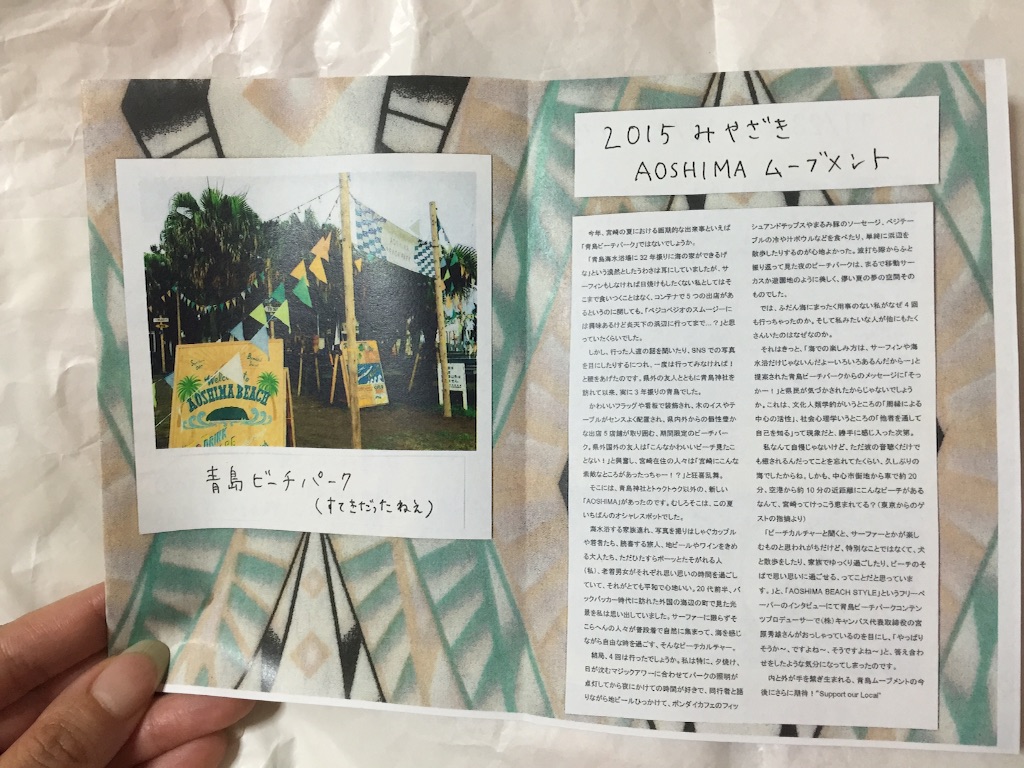 Welcome to
AOSHIMA BEACH
DRINK
青島ビーチパーク
(すてきだったねえ)
2015 みやざき
AOSHIMA ムーブメント
今年、宮崎の夏における画期的な出来事といえば
「青島ビーチパーク」ではないでしょうか。
「青島海水浴場に32年振りに海の家ができるげ
な」という漠然としたうわさは耳にしていましたが、サ
ーフィンもしなければ日焼けもしたくない私としてはそ
こまで食いつくことはなく、コンテナで5つの出店があ
るというのに関しても、「ベジコベジオのスムージーに
は興味あるけど炎天下の浜辺に行ってまで…?」と思
っていたくらいでした。
しかし、行った人達の話を聞いたり、SNSでの写真
を目にしたりするにつれ、一度は行ってみなければ!
と腰をあげたのです。県外の友人とともに青島神社を
訪れて以来、実に3年振りの青島でした。
かわいいフラッグや看板で装飾され、木のイスやテ
ーブルがセンスよく配置され、県内外からの個性豊か
な出店5店舗が取り囲む、期間限定のビーチパー
ク。県外国外の友人は「こんなかわいいビーチ見たこ
とない!」と興奮し、宮崎在住の人々は「宮崎にこんな
素敵なところがあったっちゃー!?」と狂喜乱舞。
そこには、青島神社とトゥクトゥク以外の、新しい
「AOSHIMA」があったのです。むしろそこは、この夏
いちばんのオシャレスポットでした。
海水浴する家族連れ、写真を撮りはしゃぐカップル
や若者たち、読書する旅人、地ビールやワインをきめ
る大人たち、ただひたすらボーッとたそがれる人
(私)、老若男女がそれぞれ思い思いの時間を過ごし
ていて、それがとても平和で心地いい。20代前半、バ
ックパッカー時代に訪れた外国の海辺の町で見た光
景を私は思い出していました。サーファーに限らずそ
こらへんの人々が普段着で自然に集まって、海を感じ
ながら自由な時を過ごす、そんなビーチカルチャー。
結局、4回は行ったでしょうか。私は特に、夕焼け、
日が沈むマジックアワーに合わせてパークの照明が
点灯してから夜にかけての時間が好きで、同行者と語
りながら地ビールひっかけて、ボンダイカフェのフィッ
シュアンドチップスやまるみ豚のソーセージ、ベジテー
ブルの冷や汁ボウルなどを食べたり、単純に浜辺を
散歩したりするのが心地よかった。波打ち際からふと
振り返って見た夜のビーチパークは、まるで移動サー
カスか遊園地のように美しく、儚い夏の夢の空間その
ものでした。
では、ふだん海にまったく用事のない私がなぜ4回
も行っちゃったのか。そして私みたいな人が他にもたく
さんいたのはなぜなのか。
それはきっと、「海での楽しみ方は、サーフィンや海
水浴だけじゃないんだよーいろいろあるんだからー」と
提案された青島ビーチパークからのメッセージに「そっ
かー!」と県民が気づかされたからじゃないでしょう
か。これは、文化人類学的がいうところの「周縁による
中心の活性」、社会心理学いうところの「他者を通して
自己を知る」って現象だと、勝手に感じ入った次第。
私なんて自慢じゃないけど、ただ波の音聴くだけで
も癒されるんだってことを忘れてたくらい、久しぶりの
海でしたからね。しかも、中心市街地から車で約20
分、空港から約10分の近距離にこんなビーチがある
なんて、宮崎ってけっこう恵まれてる?(東京からのゲ
ストの指摘より)
「ビーチカルチャーと聞くと、サーファーとかが楽し
むものと思われがちだけど、特別なことではなくて、犬
と散歩をしたり、家族でゆっくり過ごしたり、ビーチのそ
ばで思い思いに過ごせる、ってことだと思っていま
す。」と、「AOSHIMA BEACH STYLE」というフリーペ
ーパーのインタビューにて青島ビーチパークコンテン
ツプロデューサーで(株)キャンバス代表取締役の宮
原秀雄さんがおっしゃっているのを目にし、「やっぱり
そうか〜、ですよね〜、そうですよね〜」と、答え合わ
せをしたような気分になってしまったのです。
内と外が手を繋ぎ生まれる、青島ムーブメントの今
後にさらに期待!"Support our Local"